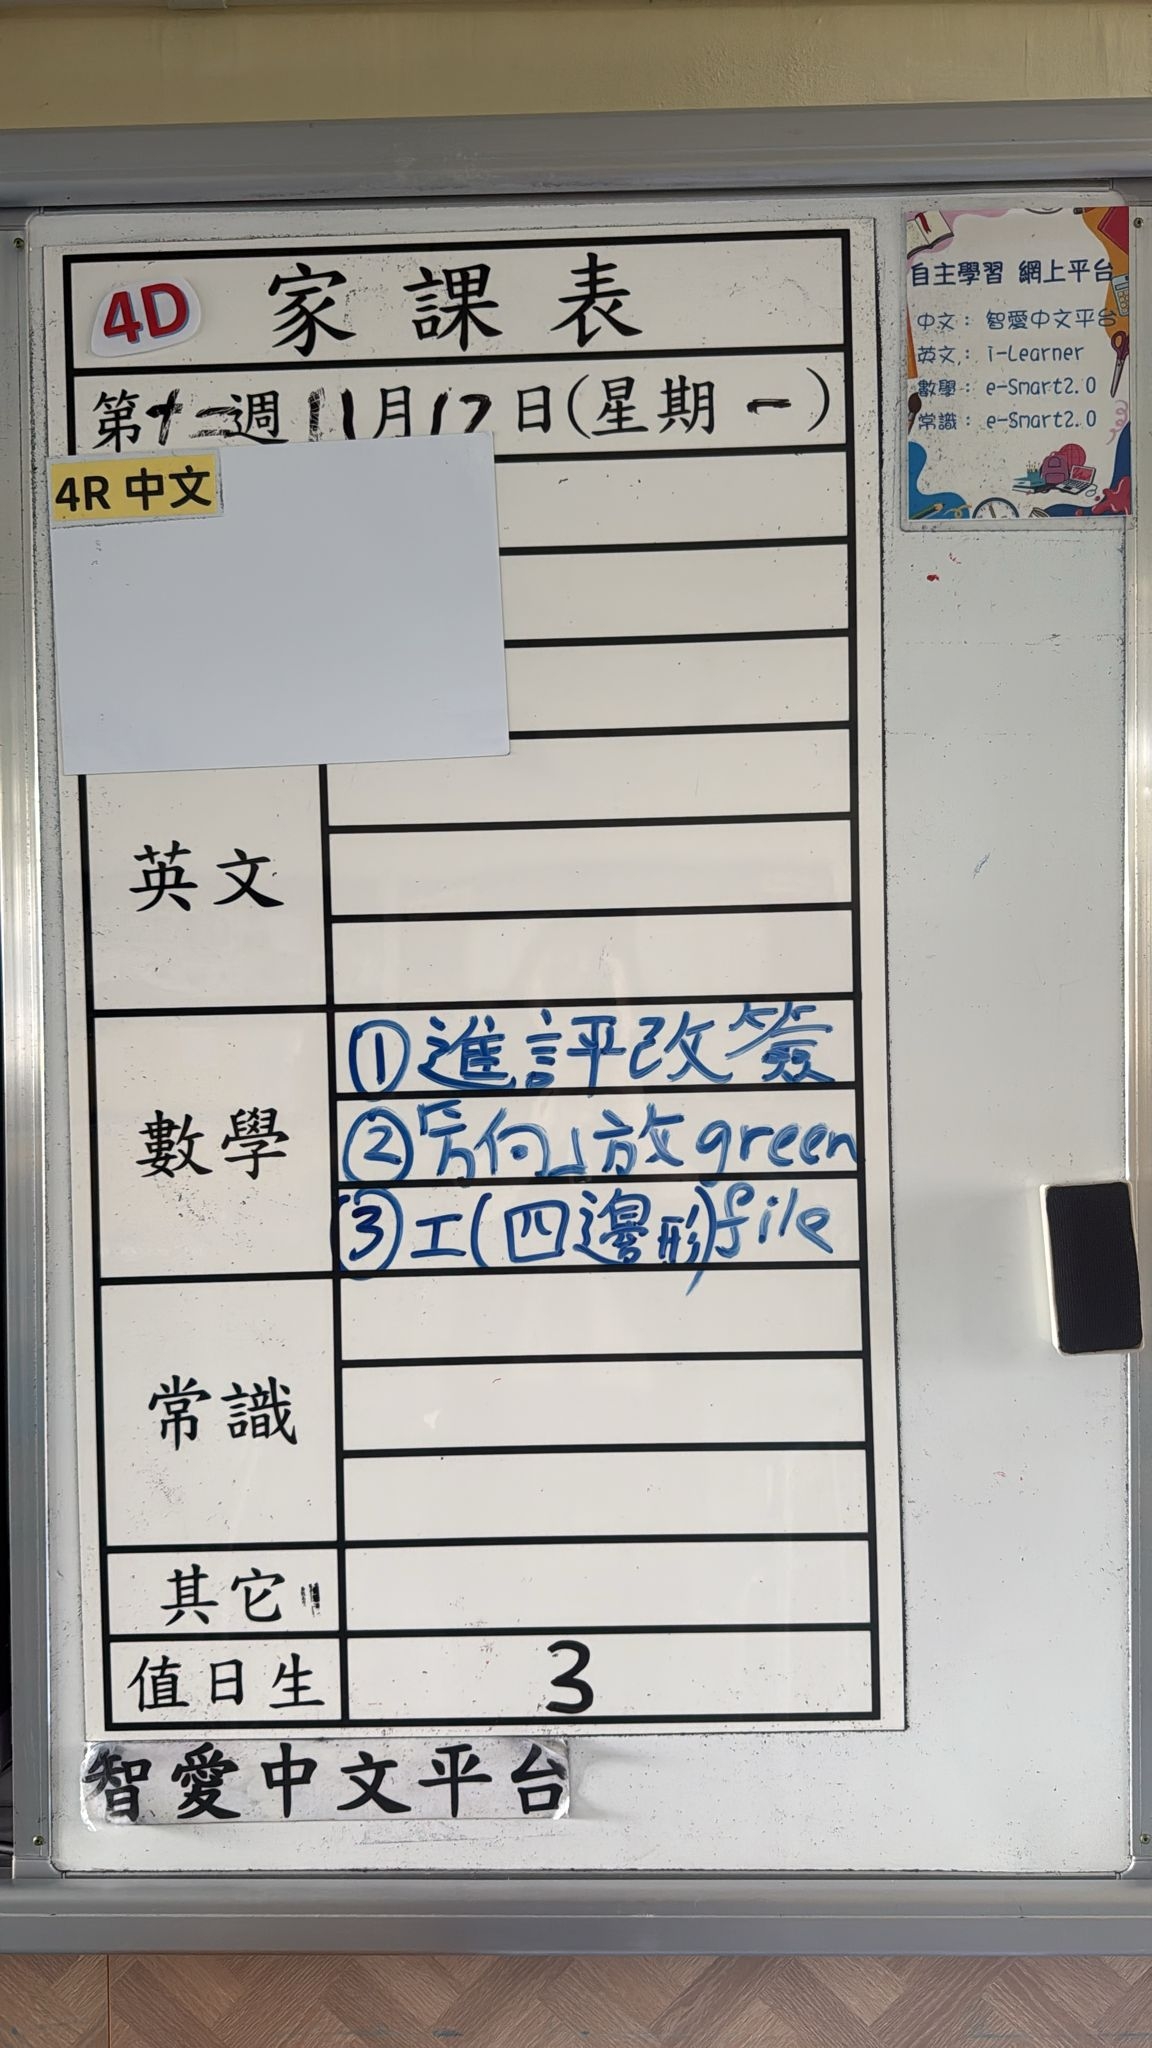 4D 家課表
第十二週 11月17日(星期一)
4R 中文
英文
數學
①進評改簽
②「方向」放green
③工(四邊形)file
常識
其它
值日生 3
智愛中文平台
自主學習 網上平台
中文: 智愛中文平台
英文: i-Learner
數學: e-Smart2.0
常識: e-Smart2.0